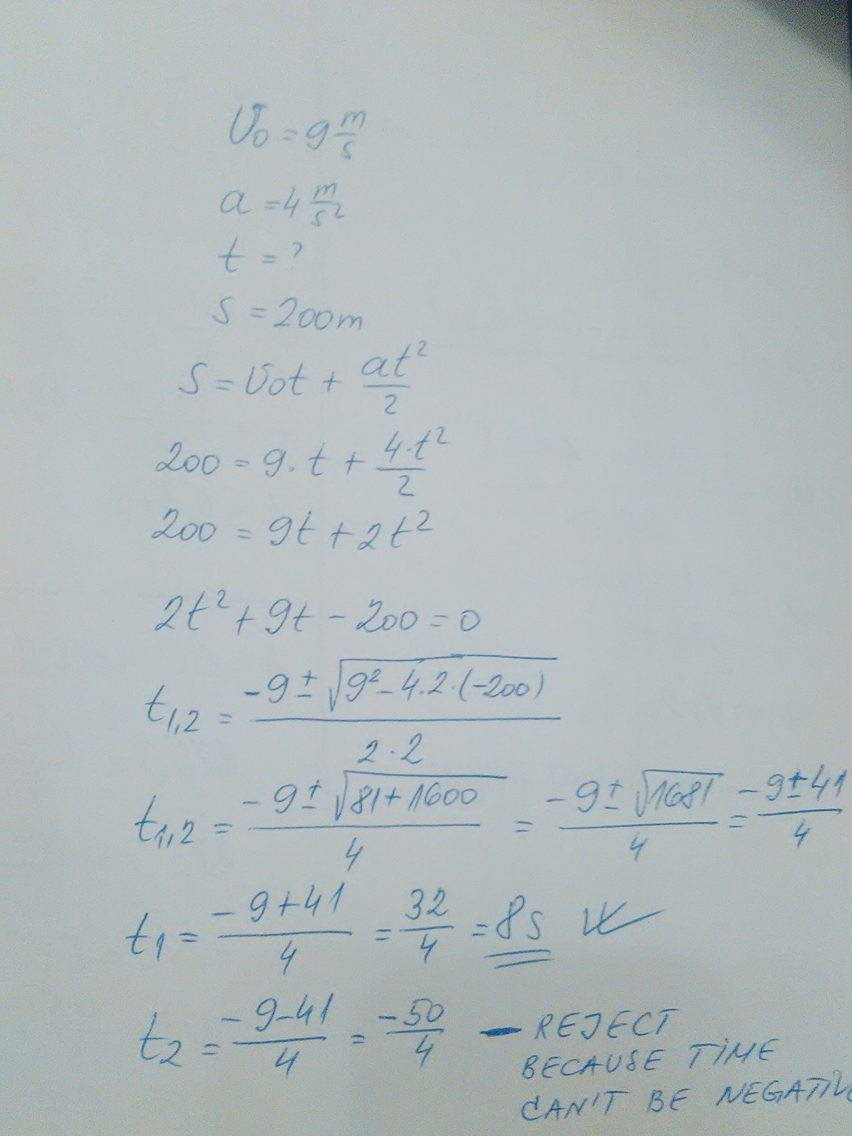 V₀ = 9 m/s
a = 4 m/s²
t = ?
s = 200m
S = V₀t + at²/2
200 = 9·t + 4·t²/2
200 = 9t + 2t²
2t² + 9t - 200 = 0
t₁,₂ = (-9 ± √(9² - 4·2·(-200)))/(2·2)
t₁,₂ = (-9 ± √(81+1600))/4 = (-9 ± √1681)/4 = (-9 ± 41)/4
t₁ = (-9+41)/4 = 32/4 = 8s
t₂ = (-9-41)/4 = -50/4 — REJECT
BECAUSE TIME
CAN'T BE NEGATIVE